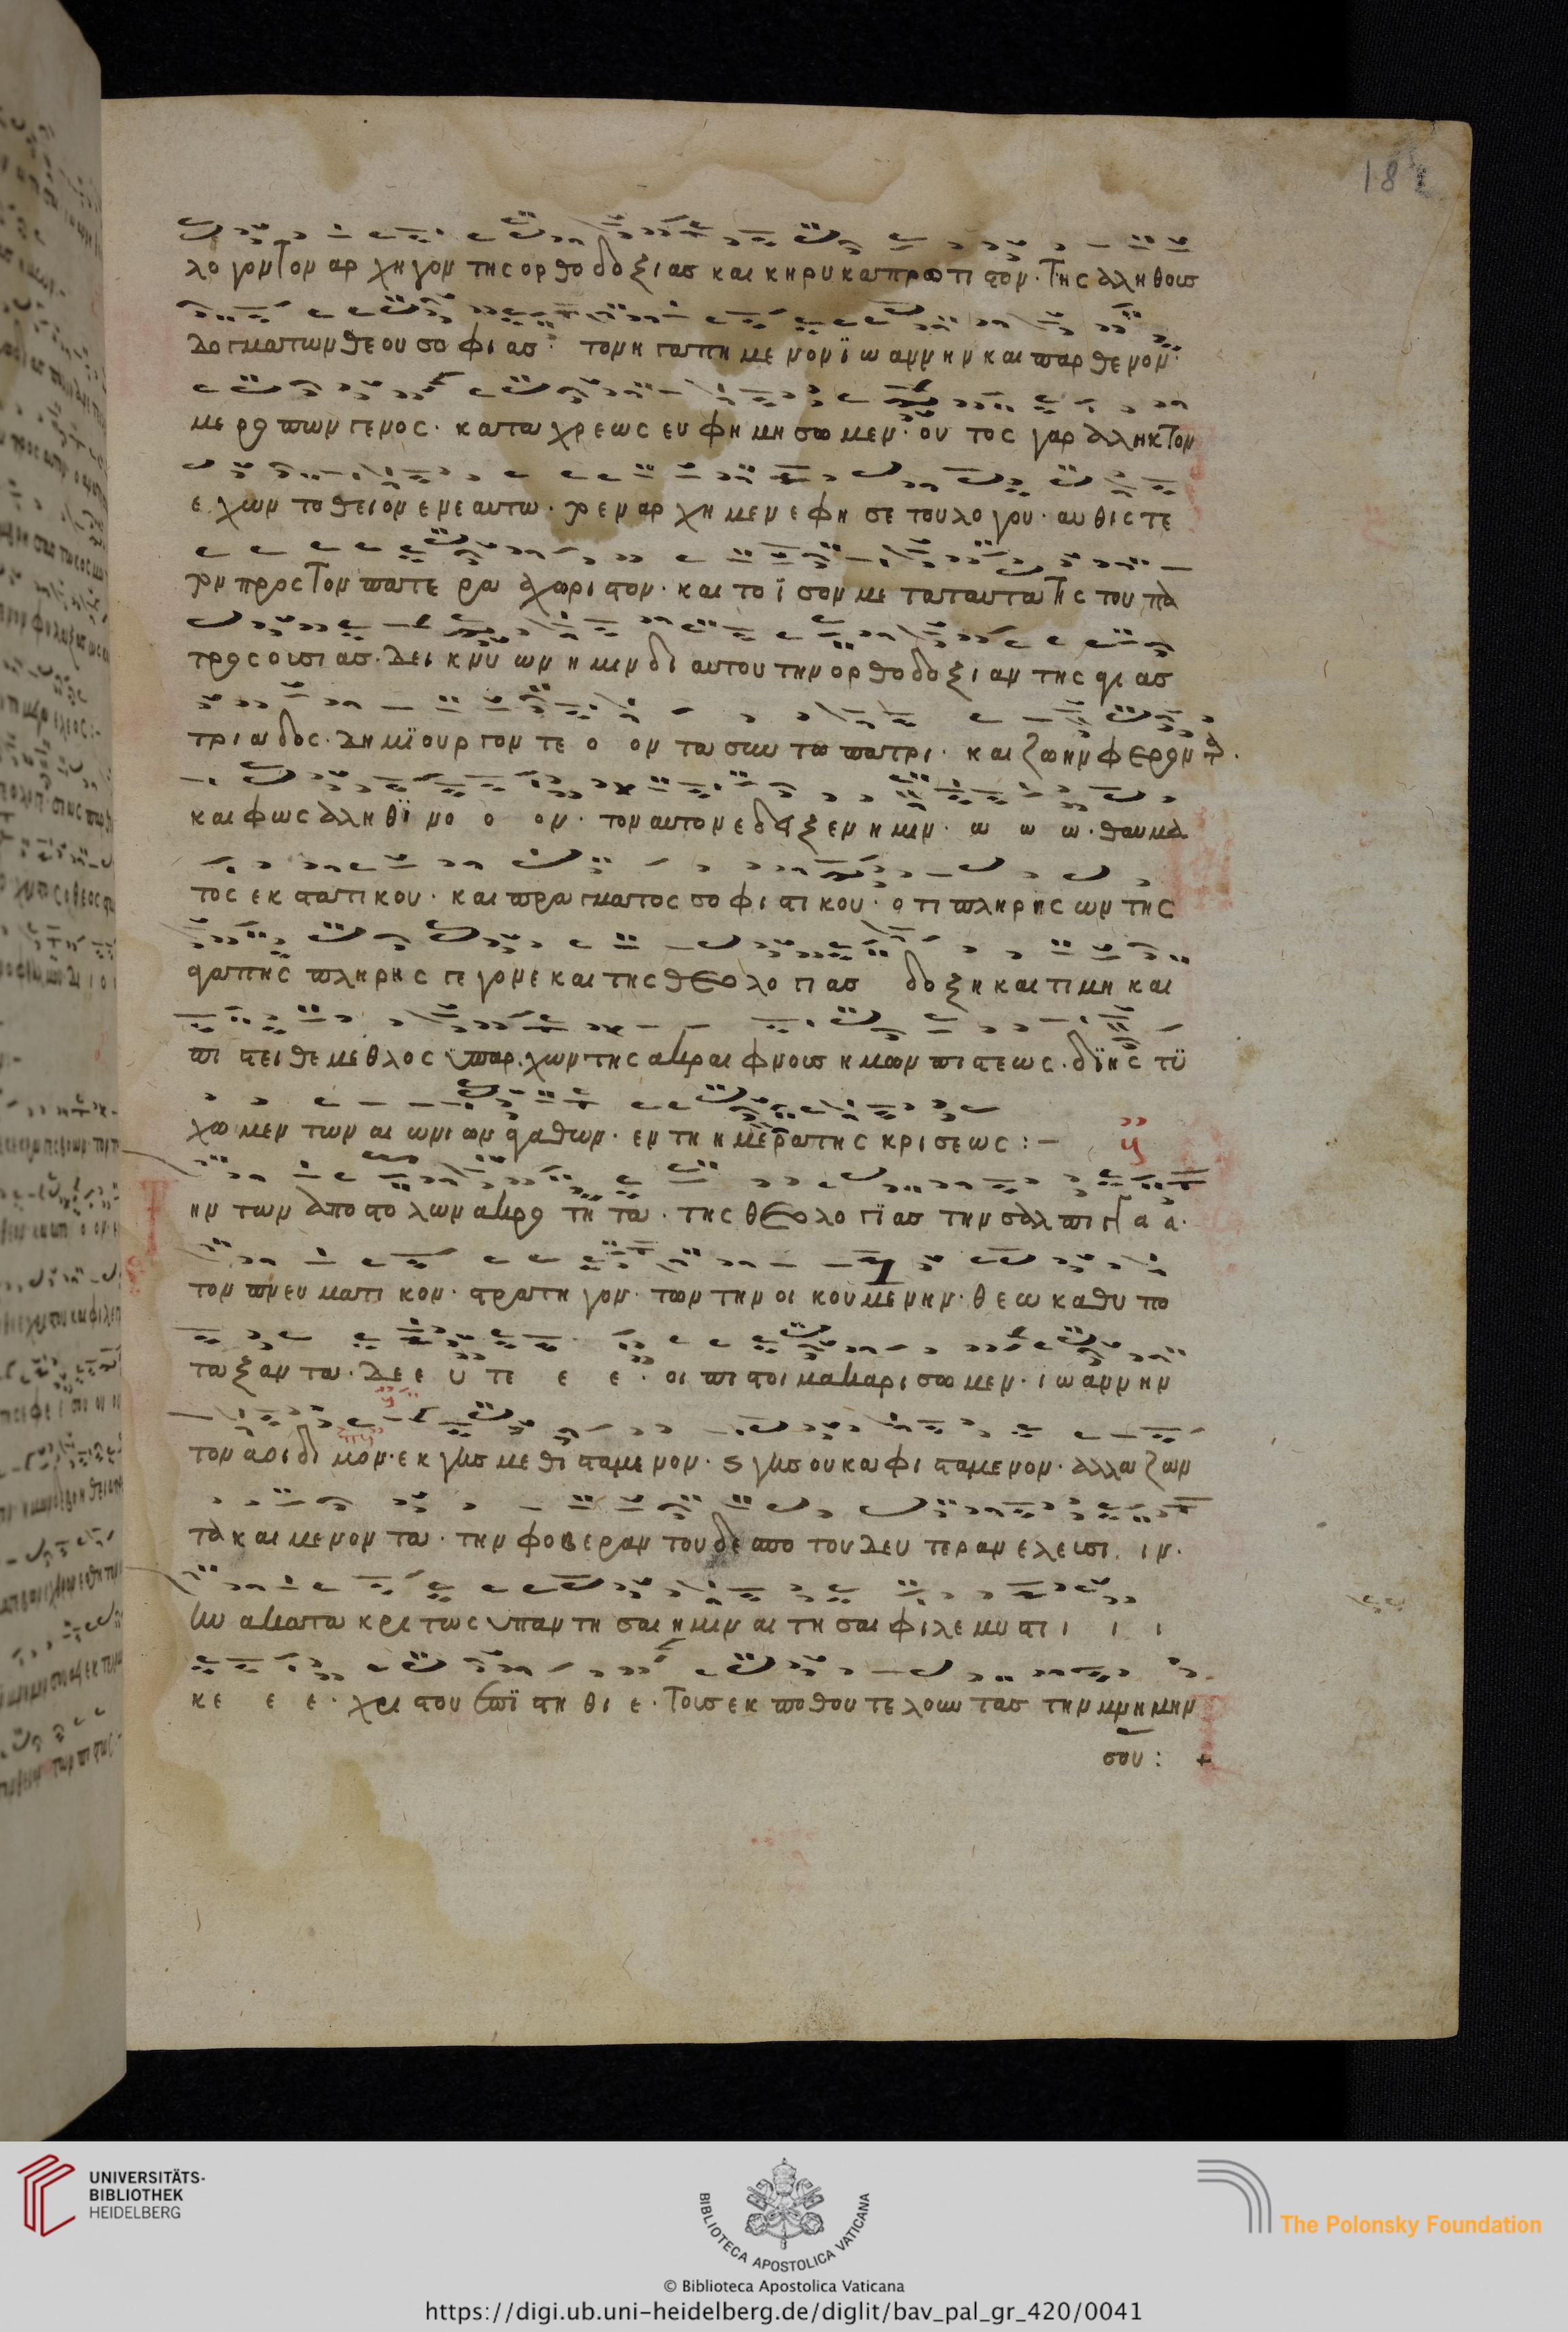 182
λο γον τον αρ χη γον της ορ θο δο ξι ας και κη ρυ κα πρω τι στον · της αλη θους
δογματων θε ου σο φι ας · τον η γαπη με νον ϊ ω αννην και παρ θενον ·
με ρο πων γενος · κατα χρεως ευ φη μη σω μεν · ου τος γαρ αληκτον
ε χων το θειον εν εαυτω · το εν αρ χη μεν ε φη σε του λο γου · αυ θις τε
προς τον πατε ρα αχωρι στον · και το ϊ σον με τα ταυτα της του πα
τρος ουσι ας · δει κνυ ων η μιν δι αυτου την ορ θο δο ξι αν της αγι ας
τρι α δος · δη μϊουρ γον τε ο ον τα συν τω πατρι · και ζωην φερον τα ·
και φως αλη θϊ νο ο ον · τον αυτον εδειξεν η μιν · ω ω ω · θαυμα
τος εκ στατι κου · και πραγματος σο φι στι κου · ο τι πληρης ων της
αγαπης πληρης γε γονε και της θεο λο γι ας δο ξη και τι μη και
πι στει θε με θλος υπαρ χων της ακραι φνους ημων πι στεως · δι ης τυ
χω μεν των αι ωνι ων αγαθων · εν τη ημερα της κρισεως : –
ην των αποστο λων ακρο τη τα · της θεο λο γϊ ας την σαλ πιγγα α α ·
τον πνευ ματι κον · στρατη γον · τον την οι κου μενην · θε ω καθυ πο
τα ξαν τα · δε ε υ τε ε ε · οι πι στοι μακαρι σω μεν · ι ω αννην
τον αοι δι μον · εκ γης με θι σταμε νον · ς γης ουκ α φι σταμενον · αλλα ζων
τα και μενον τα · την φοβεραν του δε σπο του δευ τεραν ελευσι ιν ·
ω ακατα κρι τως υπαν τη σαι η μιν αι τη σαι φιλε μυ στι ι ι ι
κε ε ε · χρι στου επϊ στη θι ε · τους εκ ποθου τε λουν τας την μνη μην
σου : +
UNIVERSITÄTS-
BIBLIOTHEK
HEIDELBERG
BIBLIOTECA APOSTOLICA VATICANA
The Polonsky Foundation
© Biblioteca Apostolica Vaticana
https://digi.ub.uni-heidelberg.de/diglit/bav_pal_gr_420/0041